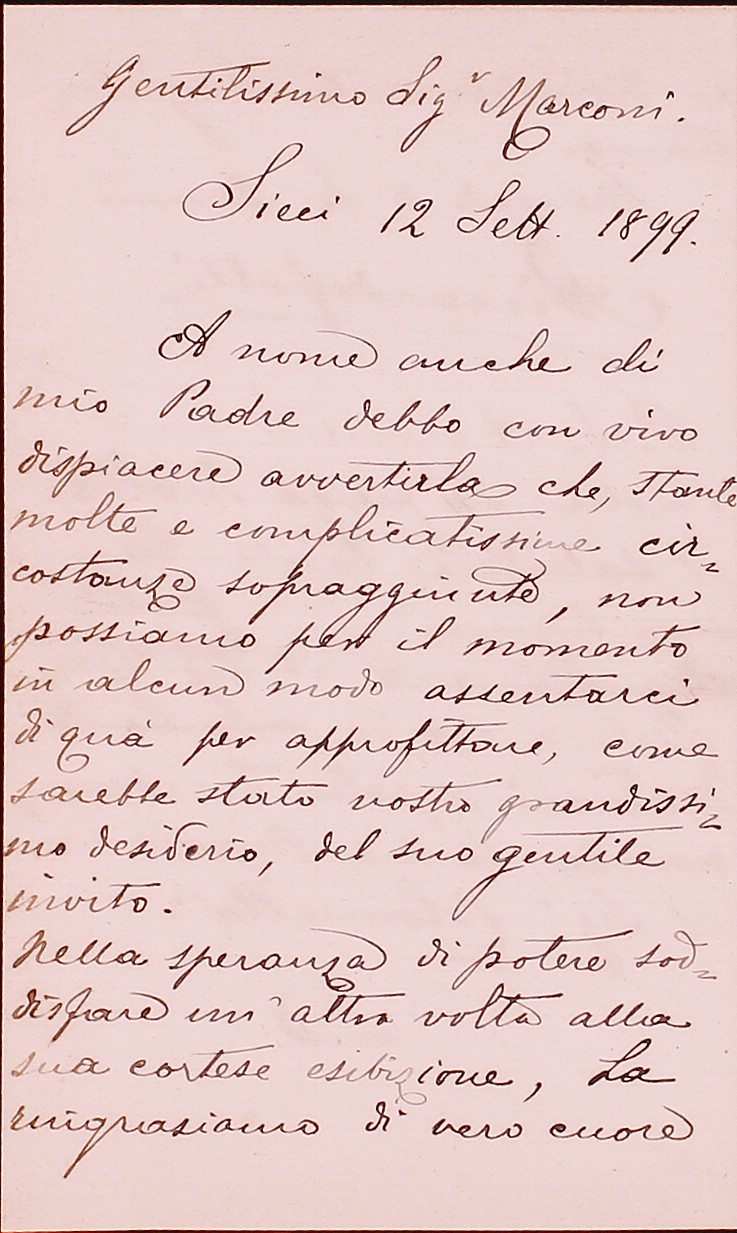 Gentilissimo Sigr Marconi.
Sieci 12 Sett. 1899.
A nome anche di
mio Padre debbo con vivo
dispiacere avvertirla che, stante
molte e complicatissime cir=
costanze sopraggiunte, non
possiamo per il momento
in alcun modo assentarci
di quà per approfittare, come
sarebbe stato nostro grandissi=
mo desiderio, del suo gentile
invito.
Nella speranza di potere sod=
disfare un' altra volta alla
sua cortese esibizione, La
ringrasiamo di vero cuore